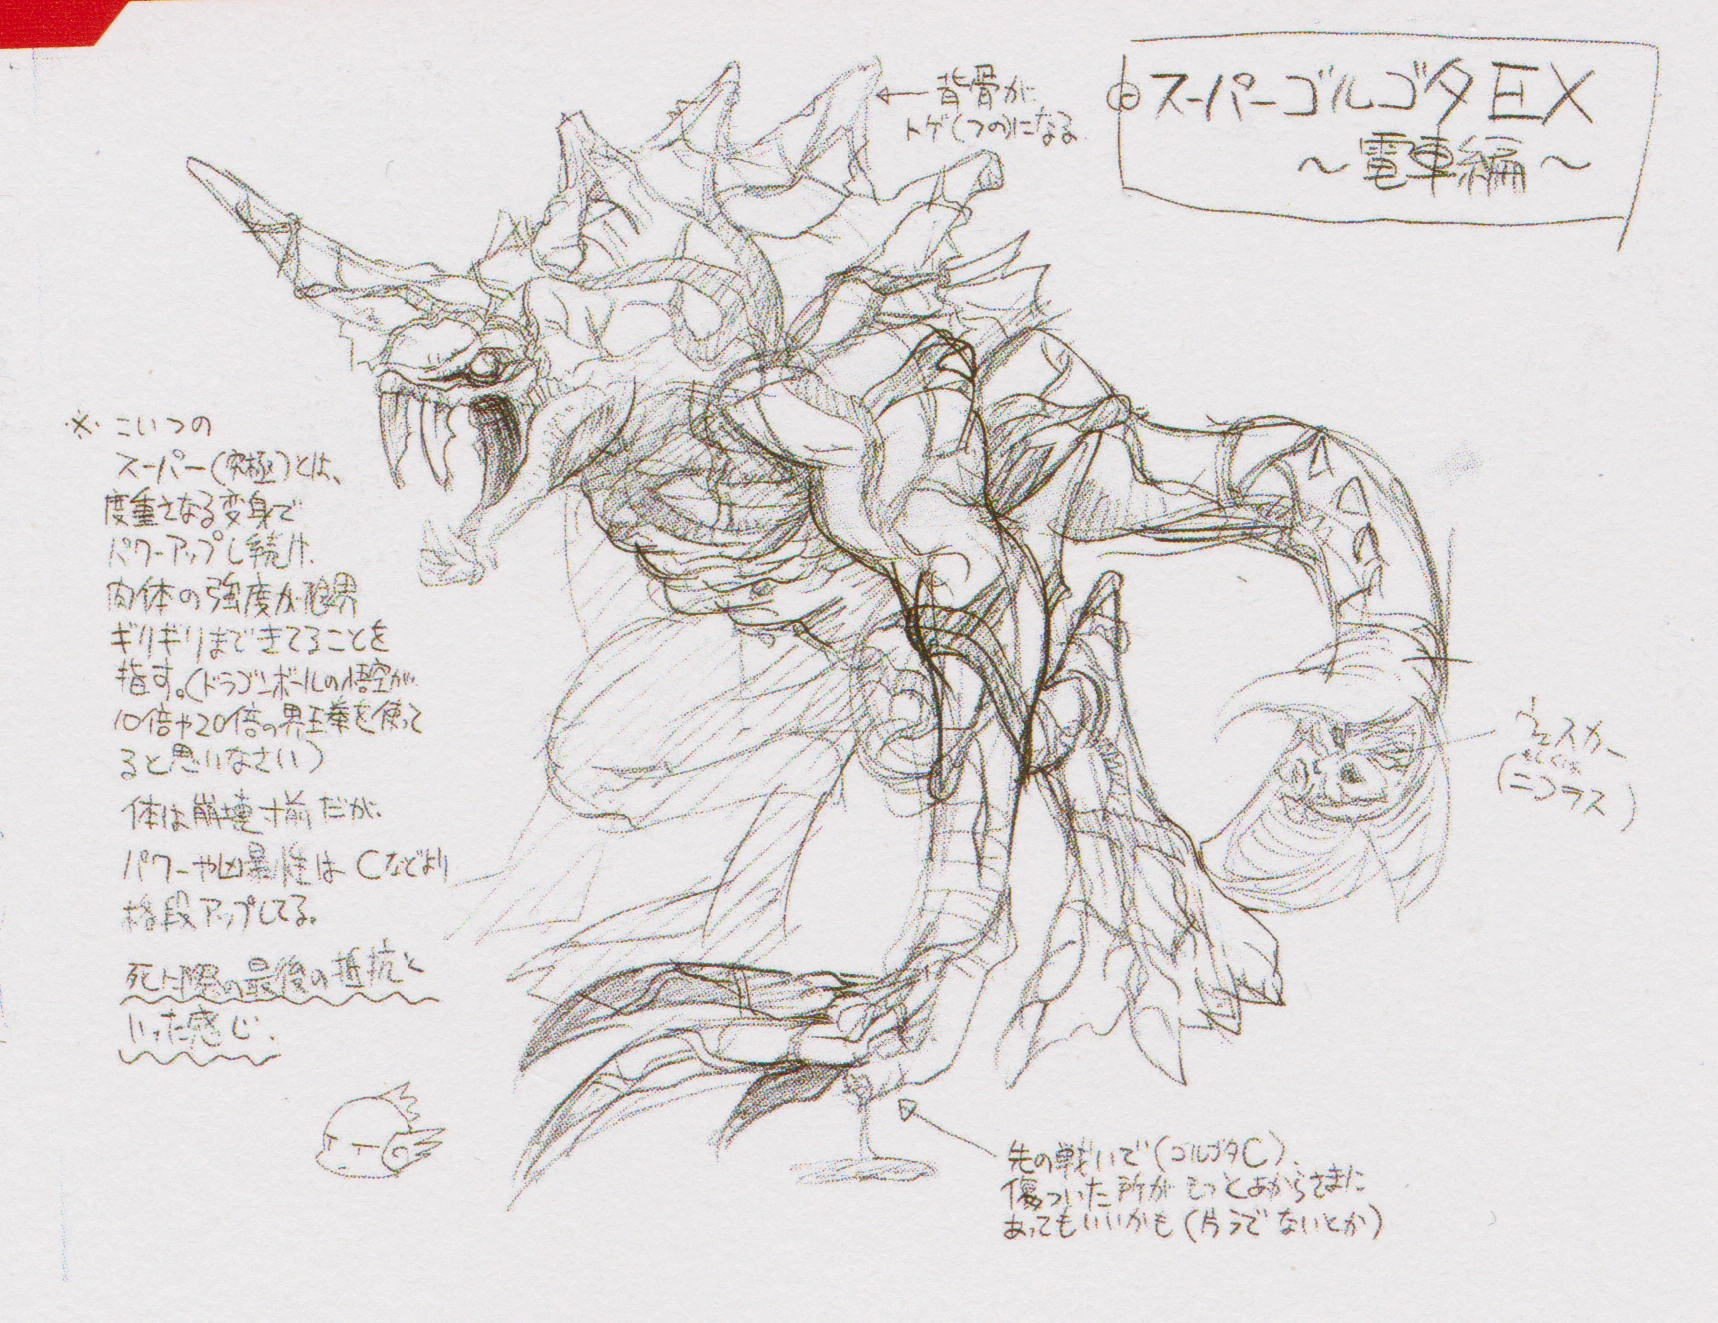 スーパーゴルゴタEX
～電車編～
←背骨が
トゲ(つの)になる
※こいつの
スーパー(究極)とは、
度重さなる変身で
パワーアップし続け、
肉体の強度が限界
ギリギリまできてることを
指す。(ドラゴンボールの悟空が、
10倍や20倍の界王拳を使って
ると思いなさい)
体は崩壊寸前だが、
パワーや凶暴性はCなどより
格段アップしてる。
死に際の最後の抵抗と
いった感じ。
ウェスカー
もしくは
(ニコラス)
先の戦いで(ゴルゴタC)
傷ついた所がもっとあからさまに
あってもいいかも(片うでないとか)